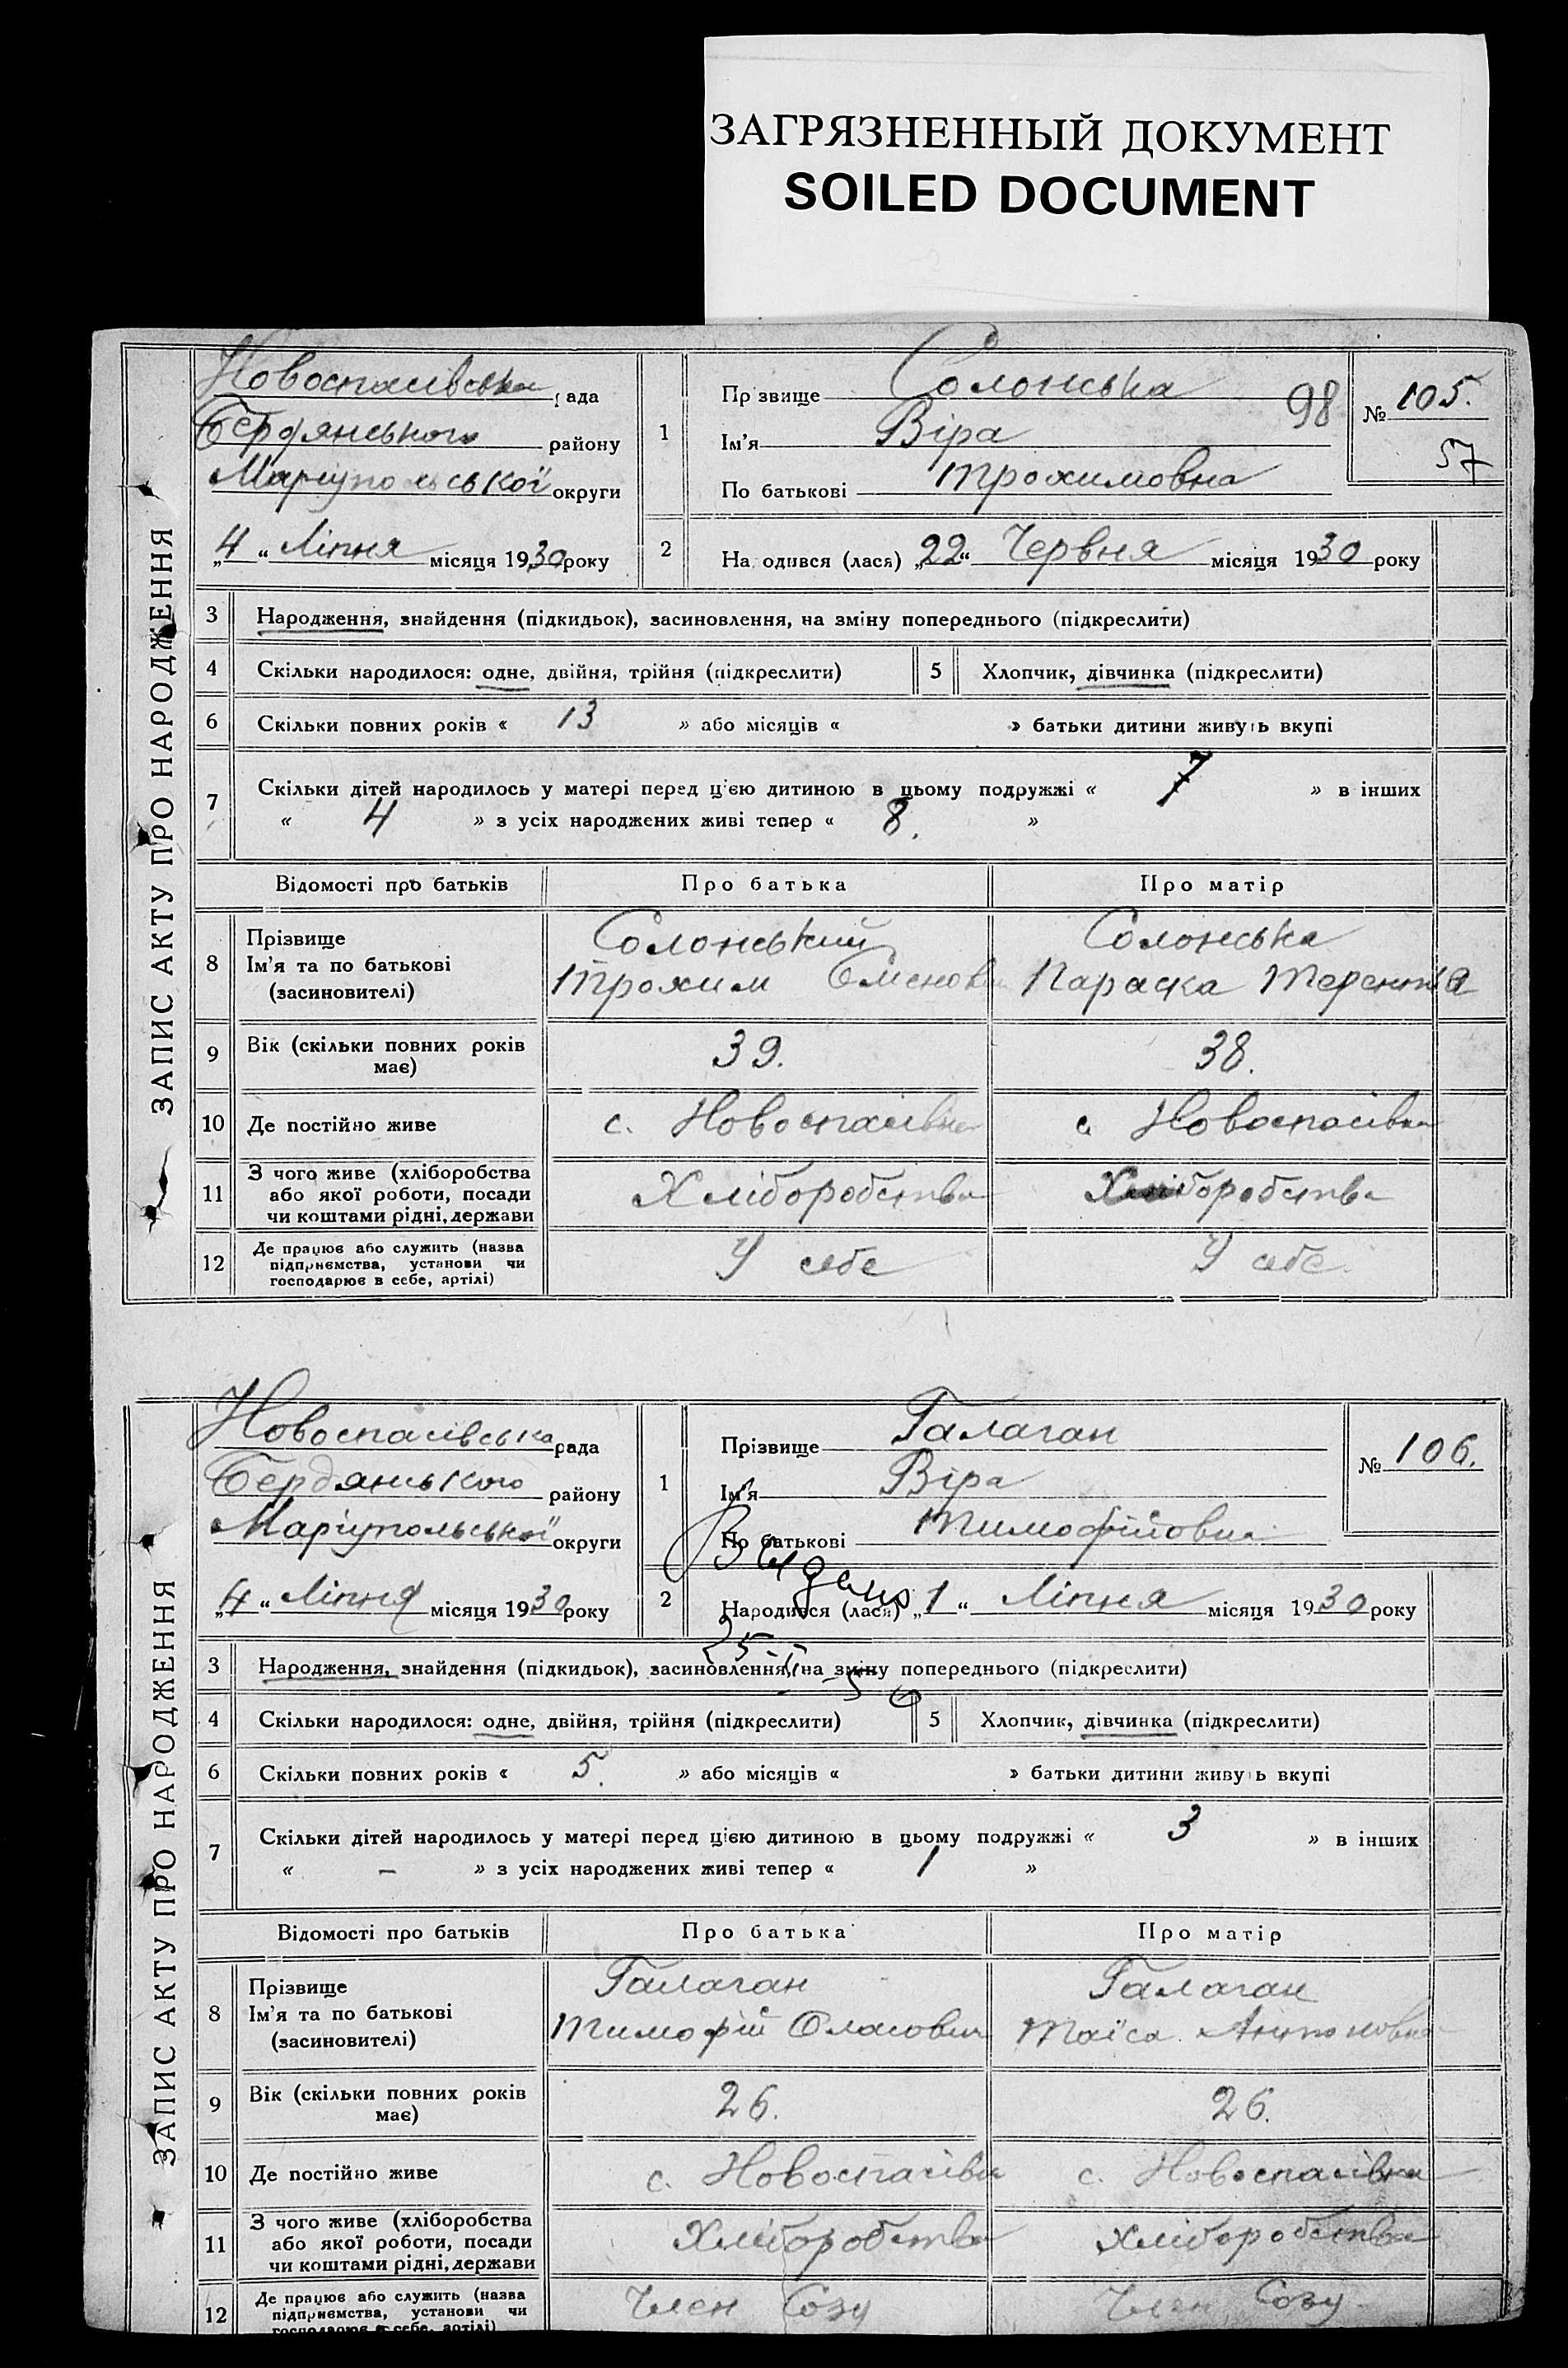 ЗАГРЯЗНЕННЫЙ ДОКУМЕНТ
SOILED DOCUMENT
ЗАПИС АКТУ ПРО НАРОДЖЕННЯ
Новоспасівська рада
Бердянського району
Маріупольської округи
„4“ Ліпня місяця 1930 року
1 Прізвище Солонська
Ім’я Віра
По батькові Трохимовна
98
№ 105.
57
2 Народився (лася) „22“ Червня місяця 1930 року
3 Народження, знайдення (підкидьок), засиновлення, на зміну попереднього (підкреслити)
4 Скільки народилося: одне, двійня, трійня (підкреслити) 5 Хлопчик, дівчинка (підкреслити)
6 Скільки повних років « 13 » або місяців « » батьки дитини живуть вкупі
7 Скільки дітей народилось у матері перед цією дитиною в цьому подружжі « 7 » в інших
« 4 » з усіх народжених живі тепер « 8. »
Відомості про батьків Про батька Про матір
8 Прізвище Солонський Солонська
Ім’я та по батькові Трохим Параска
(засиновителі)
9 Вік (скільки повних років має) 39. 38.
10 Де постійно живе с. Новоспасівка с. Новоспасівка
11 З чого живе (хліборобства
або якої роботи, посади Хліборобства Хліборобства
чи коштами рідні, держави
12 Де працює або служить (назва
підприємства, установи чи У себе У себе
господарює в себе, артілі)
ЗАПИС АКТУ ПРО НАРОДЖЕННЯ
Новоспасівська рада
Бердянського району
Маріупольської округи
„4“ Ліпня місяця 1930 року
1 Прізвище Галаган
Ім’я Віра
По батькові Тимофійовна
№ 106.
Выдано
2 Народився (лася) „1“ Ліпня місяця 1930 року
3 Народження, знайдення (підкидьок), засиновлення, на зміну попереднього (підкреслити)
4 Скільки народилося: одне, двійня, трійня (підкреслити) 5 Хлопчик, дівчинка (підкреслити)
6 Скільки повних років « 5. » або місяців « » батьки дитини живуть вкупі
7 Скільки дітей народилось у матері перед цією дитиною в цьому подружжі « 3 » в інших
« – » з усіх народжених живі тепер « 1 »
Відомості про батьків Про батька Про матір
8 Прізвище Галаган Галаган
Ім’я та по батькові Тимофій Оласович Таїса Антоновна
(засиновителі)
9 Вік (скільки повних років має) 26. 26.
10 Де постійно живе с. Новоспасівка с. Новоспасівка
11 З чого живе (хліборобства
або якої роботи, посади Хліборобства Хліборобства
чи коштами рідні, держави
12 Де працює або служить (назва
підприємства, установи чи Член Созу Член Созу
господарює в себе, артілі)